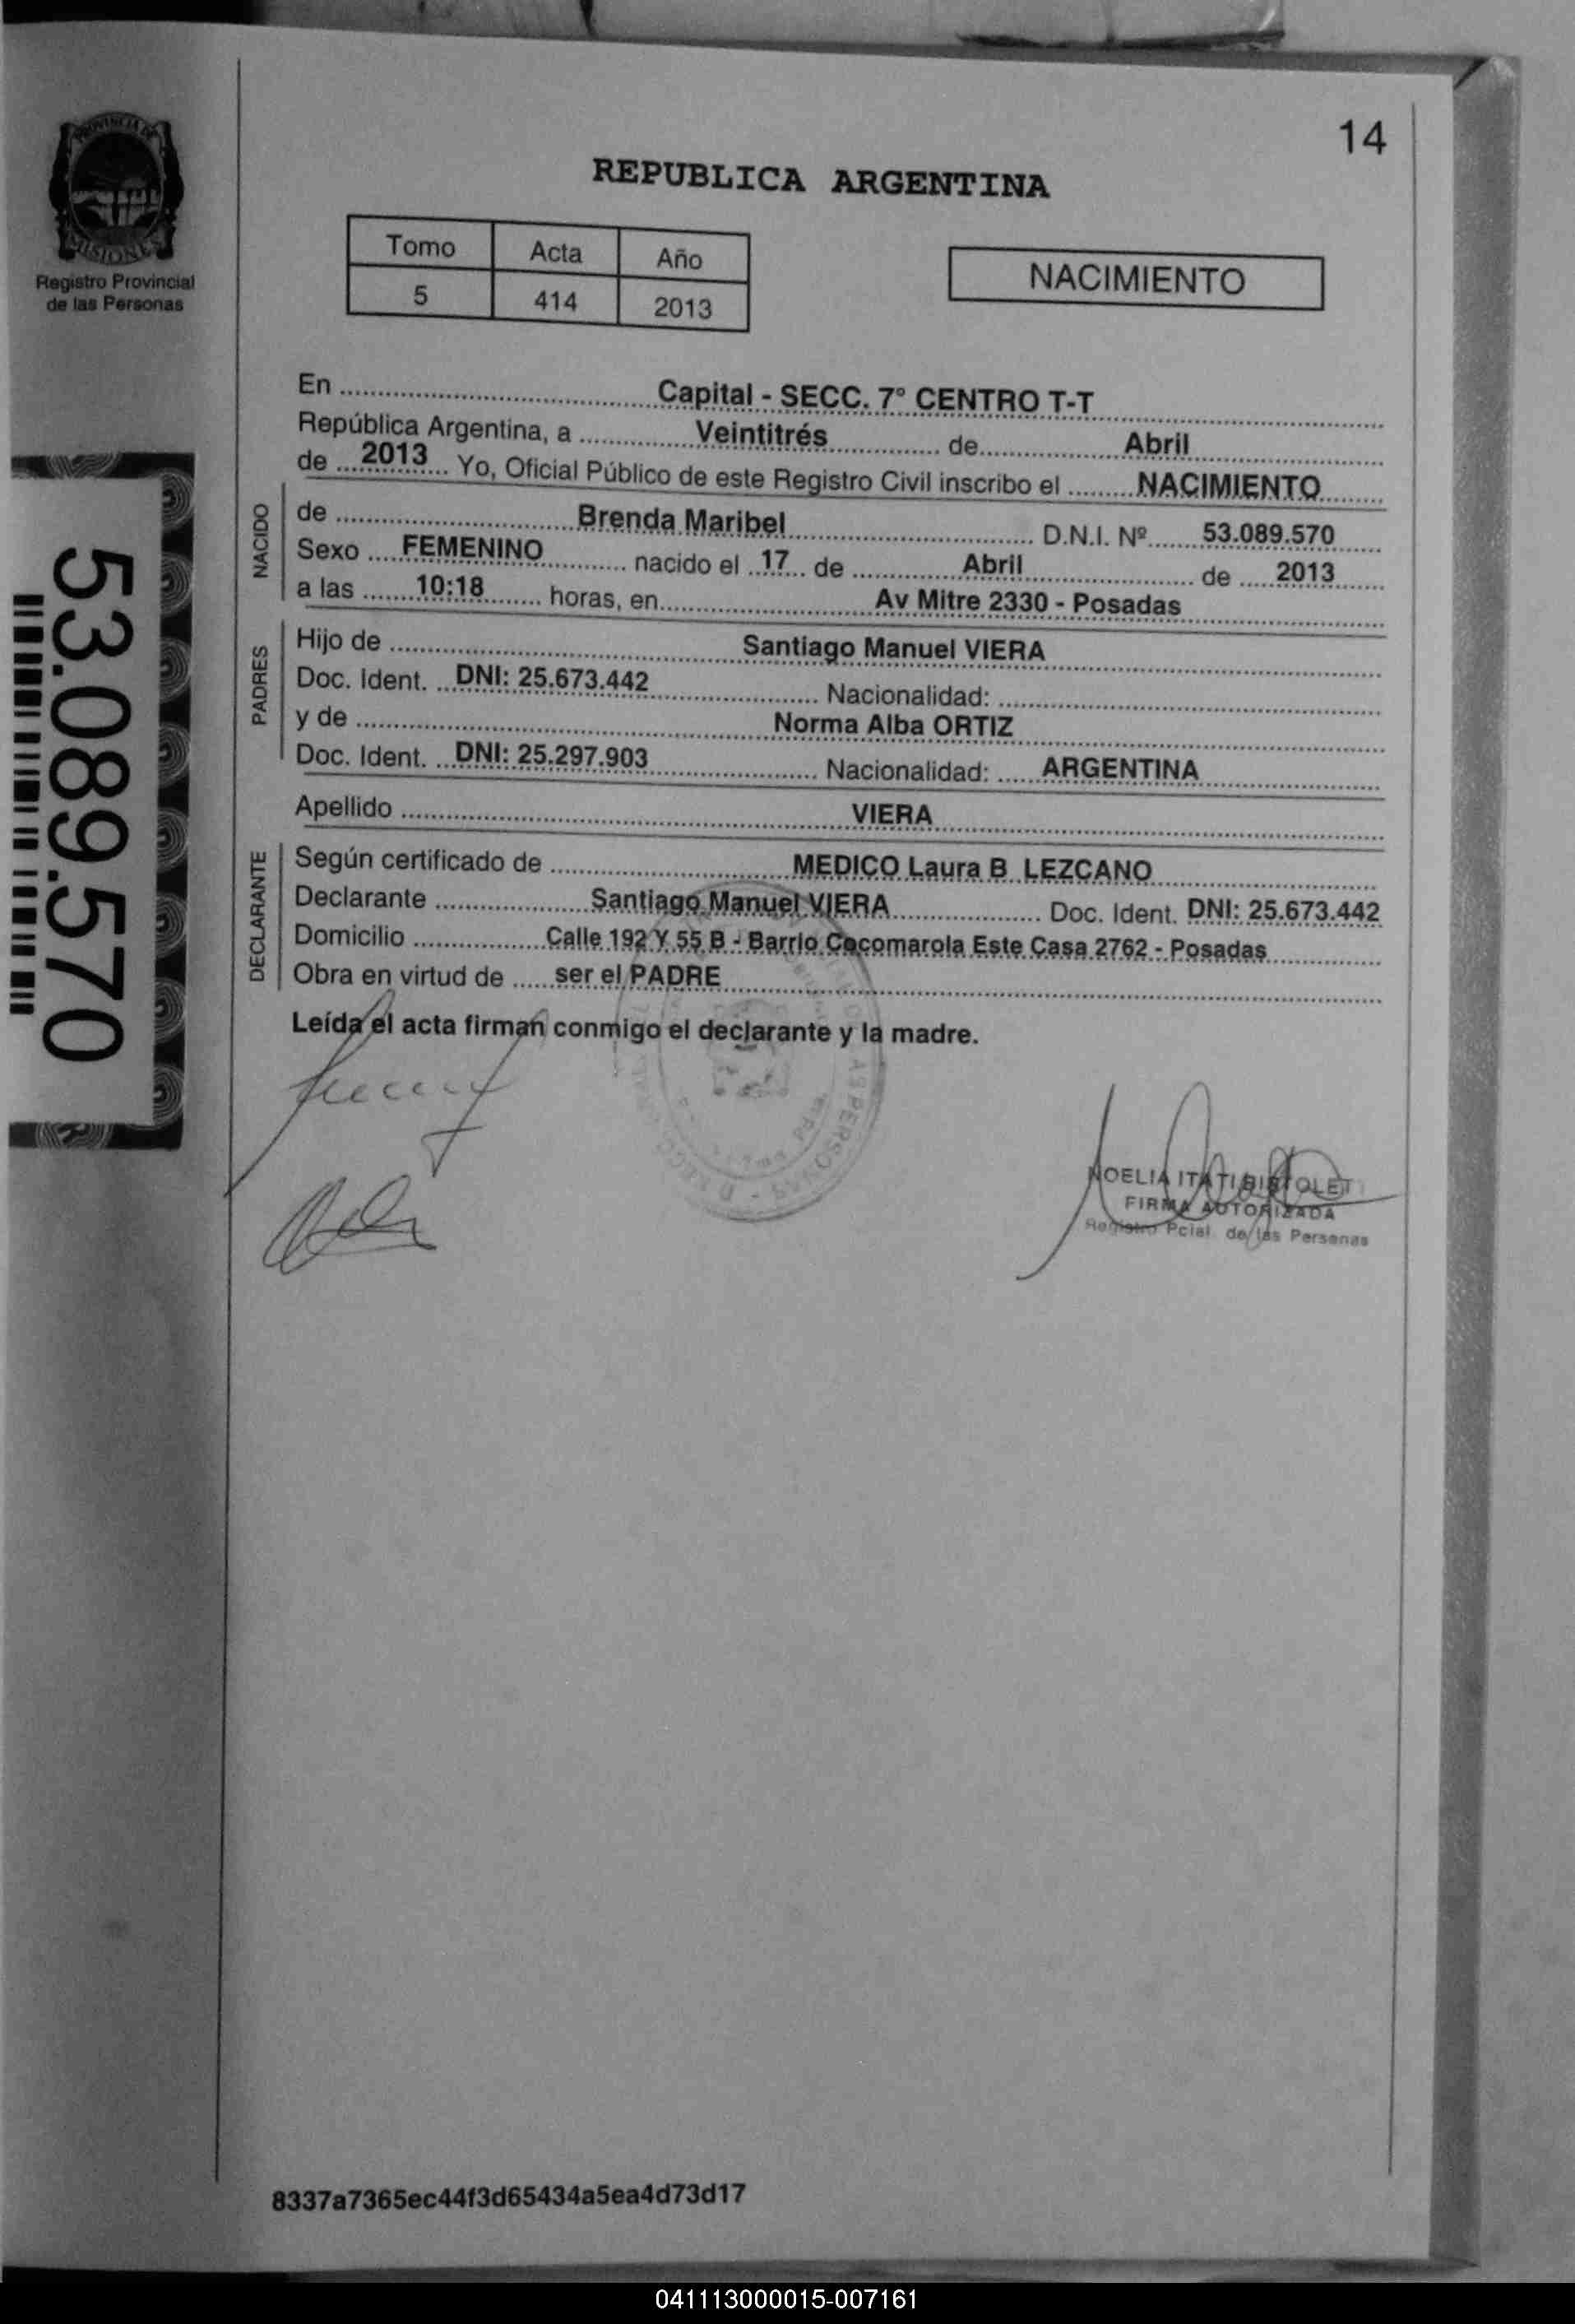 14
REPUBLICA ARGENTINA
PROVINCIA DE
MISIONES
Registro Provincial
de las Personas
Tomo Acta Año
5 414 2013
NACIMIENTO
En Capital - SECC. 7° CENTRO T-T
República Argentina, a Veintitrés de Abril
de 2013 Yo, Oficial Público de este Registro Civil inscribo el NACIMIENTO
NACIDO
de Brenda Maribel D.N.I. Nº 53.089.570
Sexo FEMENINO nacido el 17 de Abril de 2013
a las 10:18 horas, en Av Mitre 2330 - Posadas
PADRES
Hijo de Santiago Manuel VIERA
Doc. Ident. DNI: 25.673.442 Nacionalidad:
y de Norma Alba ORTIZ
Doc. Ident. DNI: 25.297.903 Nacionalidad: ARGENTINA
Apellido VIERA
DECLARANTE
Según certificado de MEDICO Laura B LEZCANO
Declarante Santiago Manuel VIERA Doc. Ident. DNI: 25.673.442
Domicilio Calle 192 Y 55 B - Barrio Cocomarola Este Casa 2762 - Posadas
Obra en virtud de ser el PADRE
Leída el acta firman conmigo el declarante y la madre.
53.089.570
NOELIA ITATI
FIRMA AUTORIZADA
Registro Pcial. de las Personas
8337a7365ec44f3d65434a5ea4d73d17
041113000015-007161